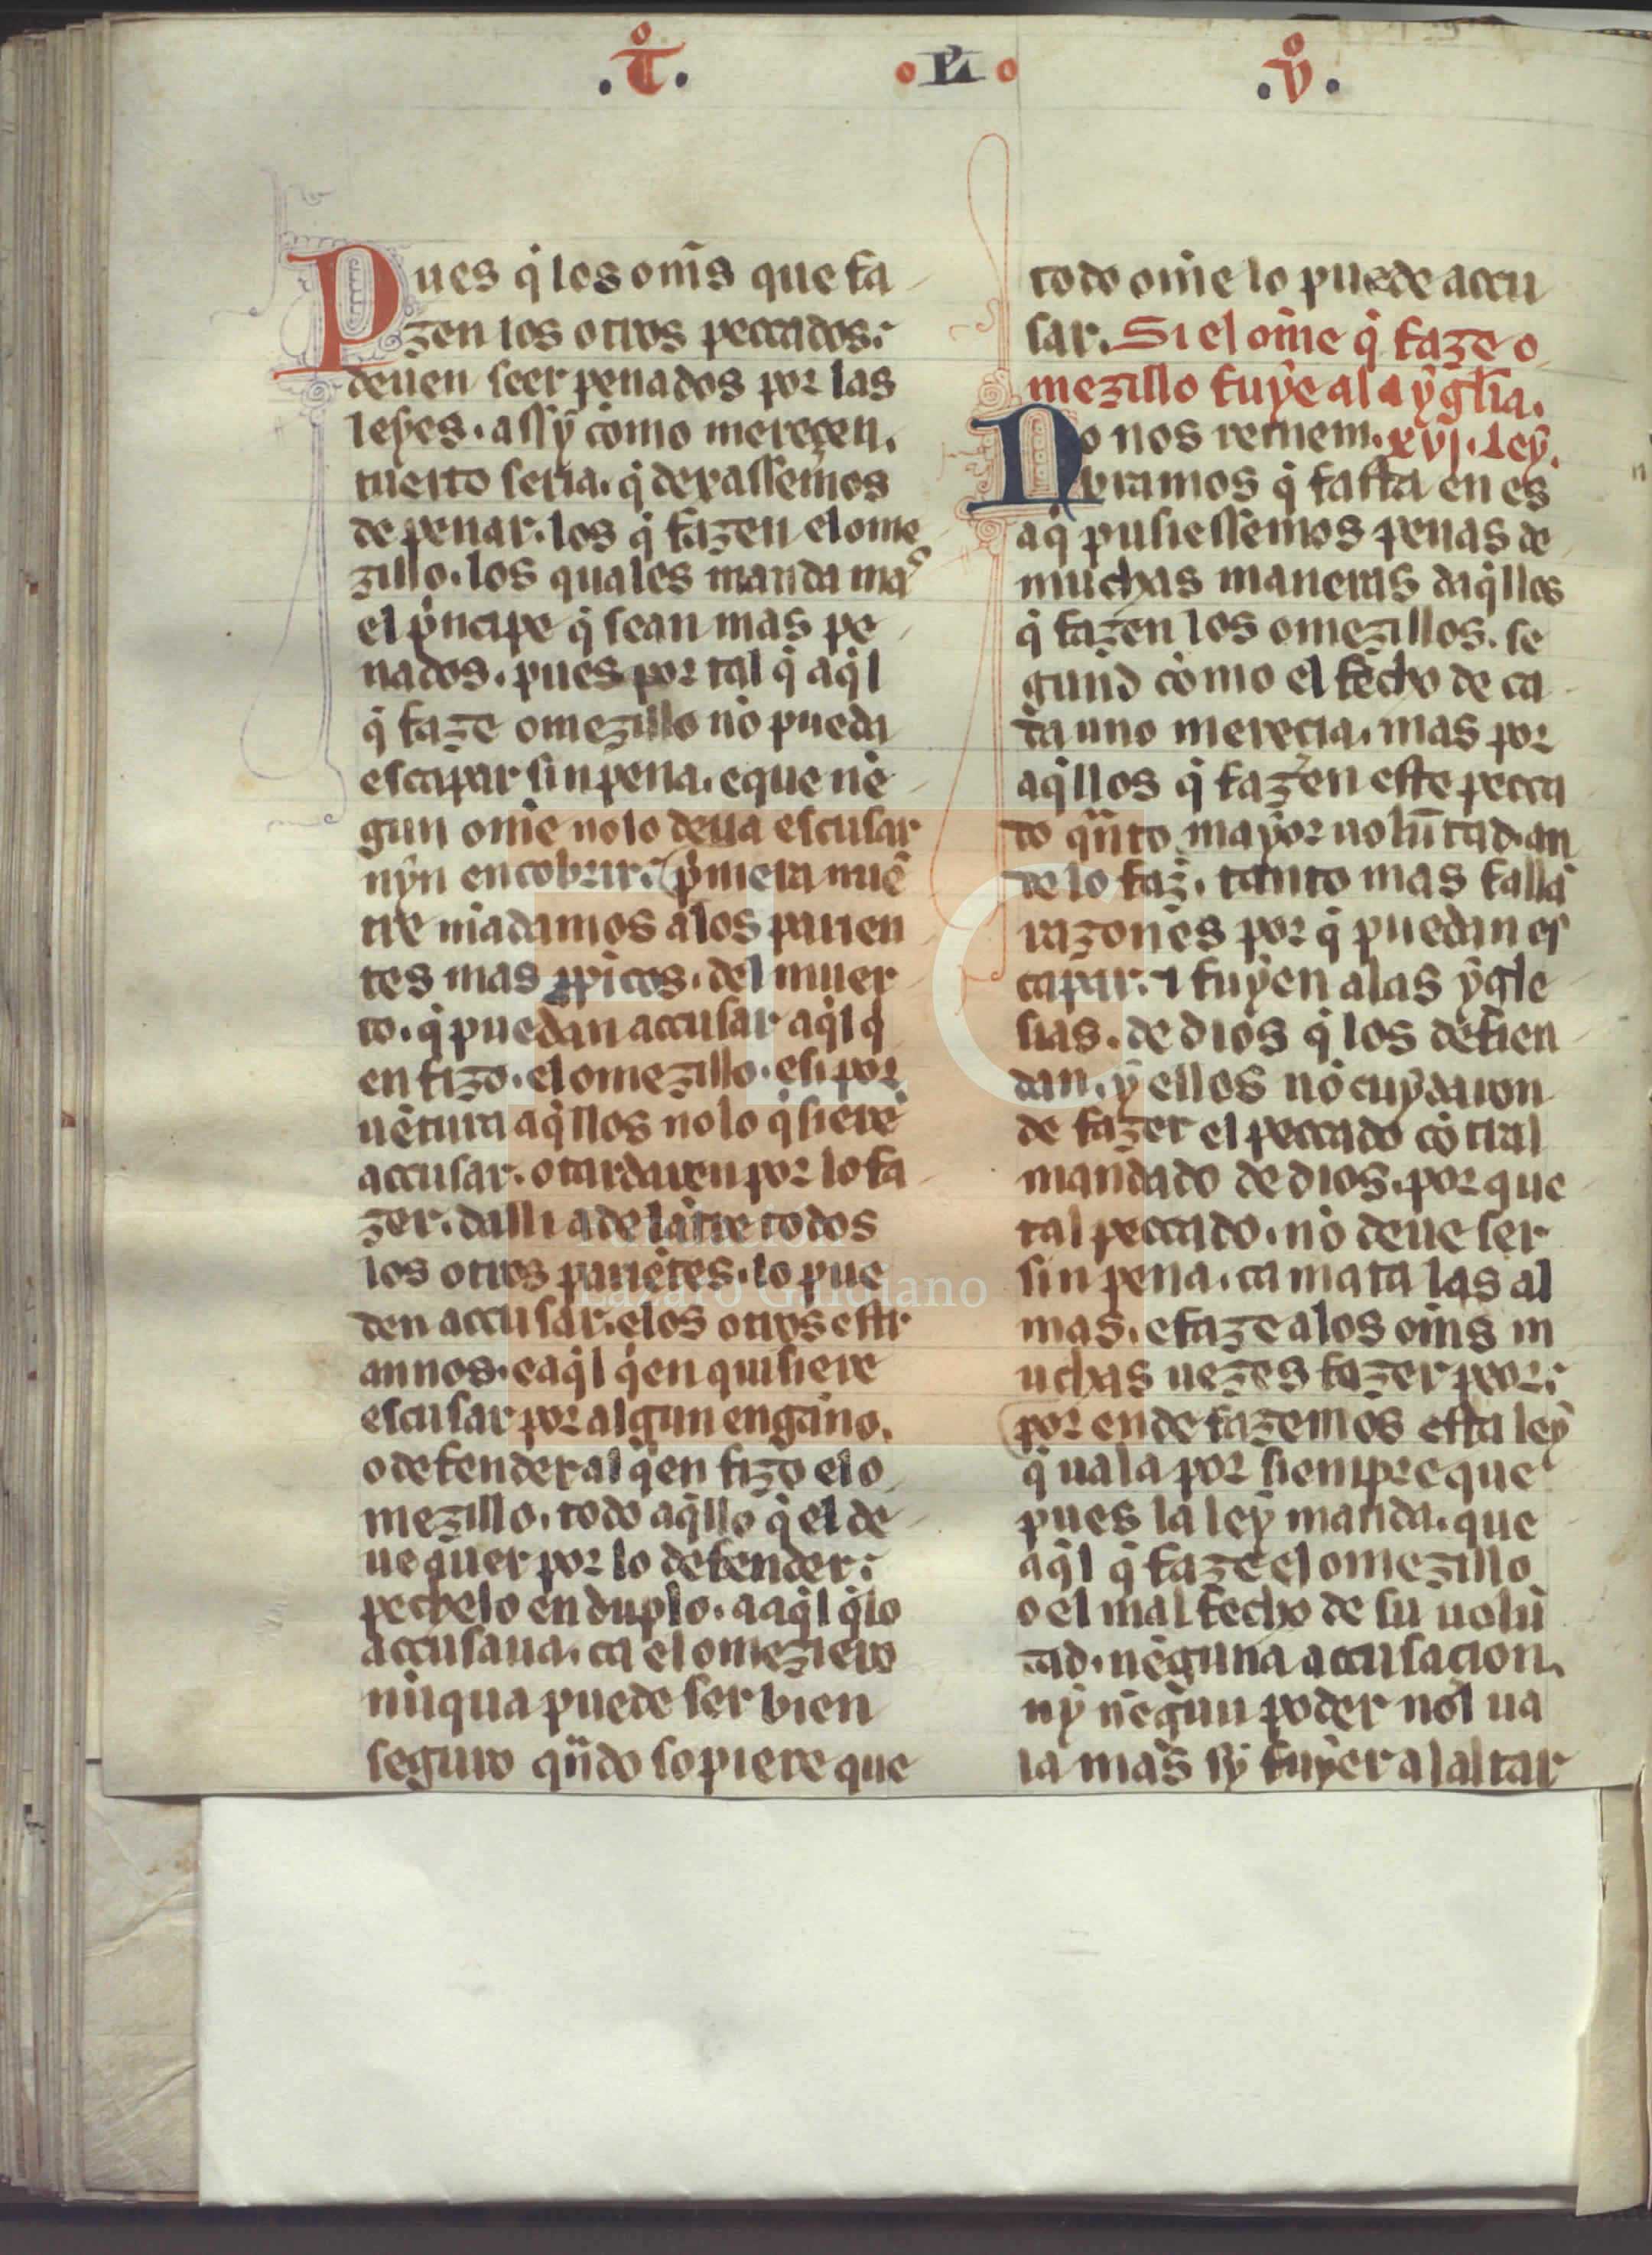 .Tº. o L o .vº.
Pues q̇ los om̄s que fa
zen los otros peccados.
deuen seer penados por las
leyes. assẏ como mereçen.
tuerto seria. q̇ dexassemos
de penar. los q̇ fazen el ome
zillo. los quales manda mas
el pͥncipe q̇ sean mas pe
nados. pues por tal q̇ aq̇l
q̇ faze omezillo nō pueda
escapar sin pena. e que nē
gun om̄e no lo deua escusar
nẏn encobrir. pͥmera muē
tre mādamos a los parien
tes mas ꝓpīcos. del muer
to. q̇ puedan accusar aq̇l q̇
en fizo. el omezillo. e si por
uētura aq̇llos no lo q̇sierē
accusar. o tardaren por lo fa
zer. dalli adelātre todos
los otros pariētes. lo pue
den accusar. e los otros estr
annos. e aq̇l q̇en quisiere
escusar por algun enganno.
o defender al q̇en fizo el o
mezillo. todo aq̇llo q̇ el de
ue auer por lo defender.
pechelo en duplo. a aq̇l q̇ lo
accusaua. ca el omeziero
nūqua puede ser bien
seguro qn̄do sopiere que
todo om̄e lo puede accu
sar. Si el om̄e q̇ faze o
mezillo fuẏe al a ẏgl̄ia.
No nos remem. xvj. Leẏ.
bramos q̇ fasta en es
aq̇ pusiessemos penas de
muchas maneras daq̇llos
q̇ fazen los omezillos. se
gund cōmo el fecho de ca
da uno merecia. mas por
aq̇llos q̇ fazen este pecca
do qn̄to maẏor uolūtad. an
de lo faz̄. tanto mas fallā
razones por q̇ puedan es
capar. ⁊ fuẏen a las ẏgle
sias. de dios q̇ los defien
dan. ẏ ellos nō cuẏdaron
de fazer el peccado cōtral
mandado de dios. por que
tal peccado. nō deue ser
sin pena. ca mata las al
mas. e faze a los om̄s m
uchas uezes fazer peor.
por ende fazemos esta leẏ
q̇ uala por siempre que
pues la leẏ manda. que
aq̇l q̇ faze el omezillo
o el mal fecho de su uolū
tad. nēguna accusacion.
nẏ nēgun poder nol ua
la mas sẏ fuẏer al altar
Fundación
Lázaro Galdiano